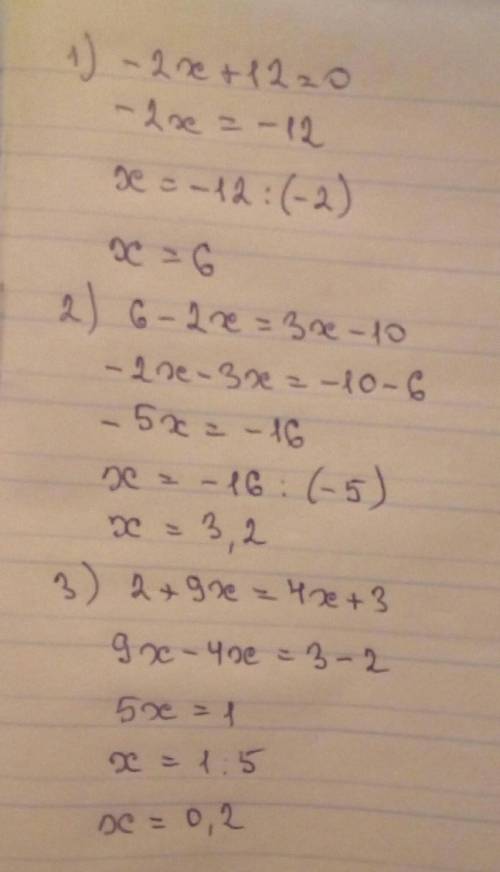 1) -2x+12=0
-2x = -12
x = -12 : (-2)
x = 6
2) 6 - 2x = 3x - 10
-2x - 3x = -10 - 6
-5x = -16
x = -16 : (-5)
x = 3,2
3) 2 + 9x = 4x + 3
9x - 4x = 3 - 2
5x = 1
x = 1 : 5
x = 0,2